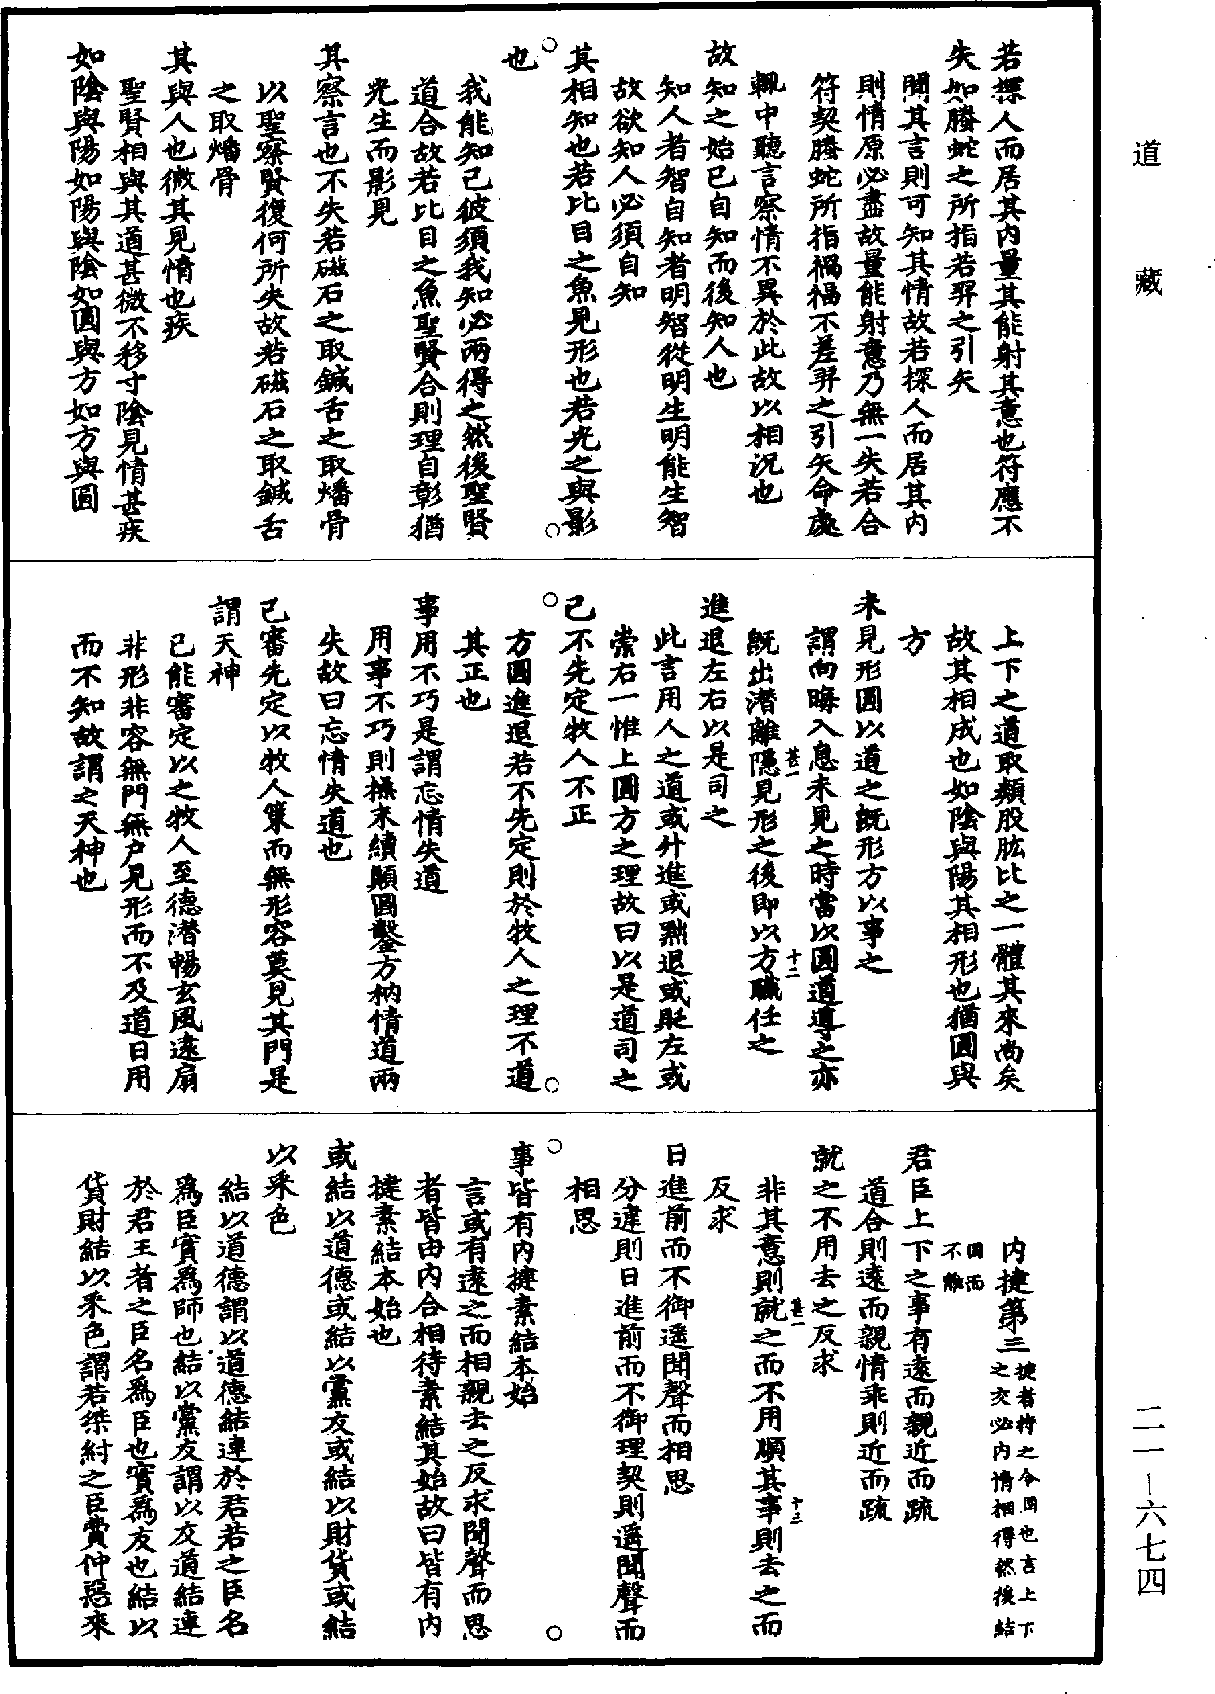 道藏
若探人而居其內量其能射其意也符應不
失如螣蛇之所指若羿之引矢
聞其言則可知其情故若探人而居其內
則情原必盡故量能射意乃無一失若合
符契螣蛇所指禍福不差羿之引矢命處
輒中聽言察情不異於此故以相況也
故知之始己自知而後知人也
知人者智自知者明智從明生明能生智
故欲知人必須自知
其相知也若比目之魚見形也若光之與影
也
我能知己彼須我知必兩得之然後聖賢
道合故若比目之魚聖賢合則理自彰猶
光生而影見
其察言也不失若磁石之取鍼舌之取燔骨
以聖察賢復何所失故若磁石之取鍼舌
之取燔骨
其與人也微其見情也疾
聖賢相與其道甚微不移寸陰見情甚疾
如陰與陽如陽與陰如圓與方如方與圓
上下之道取類股肱比之一體其來尚矣
故其相成也如陰與陽其相形也猶圓與
方
未見形圓以道之既形方以事之
謂向晦入息未見之時當以圓道導之亦
既出潛離隱見形之後即以方職任之
甚一 十二
進退左右以是司之
此言用人之道或升進或黜退或貶左或
崇右一惟上圓方之理故曰以是道司之
己不先定牧人不正
方圓進退若不先定則於牧人之理不道
其正也
事用不巧是謂忘情失道
用事不巧則操末續顛圓鑿方枘情道兩
失故曰忘情失道也
己審先定以牧人策而無形容莫見其門是
謂天神
己能審定以之牧人至德潛暢玄風遠扇
非形非容無門無戶見形而不及道日用
而不知故謂之天神也
內揵第三 揵者持之令固也言上下
之交必內情相得然後結
固而
不離
君臣上下之事有遠而親近而疏
道合則遠而親情乖則近而疏
就之不用去之反求
非其意則就之而不用順其事則去之而
甚一 十三
反求
日進前而不御遥聞聲而相思
分違則日進前而不御理契則遥聞聲而
相思
事皆有內揵素結本始
言或有遠之而相親去之反求聞聲而思
者皆由內合相待素結其始故曰皆有內
揵素結本始也
或結以道德或結以黨友或結以財貨或結
以采色
結以道德謂以道德結連於君若之臣名
爲臣實爲師也結以黨友謂以友道結連
於君王者之臣名爲臣也實爲友也結以
貨財結以采色謂若桀紂之臣費仲惡來
二一－六七四